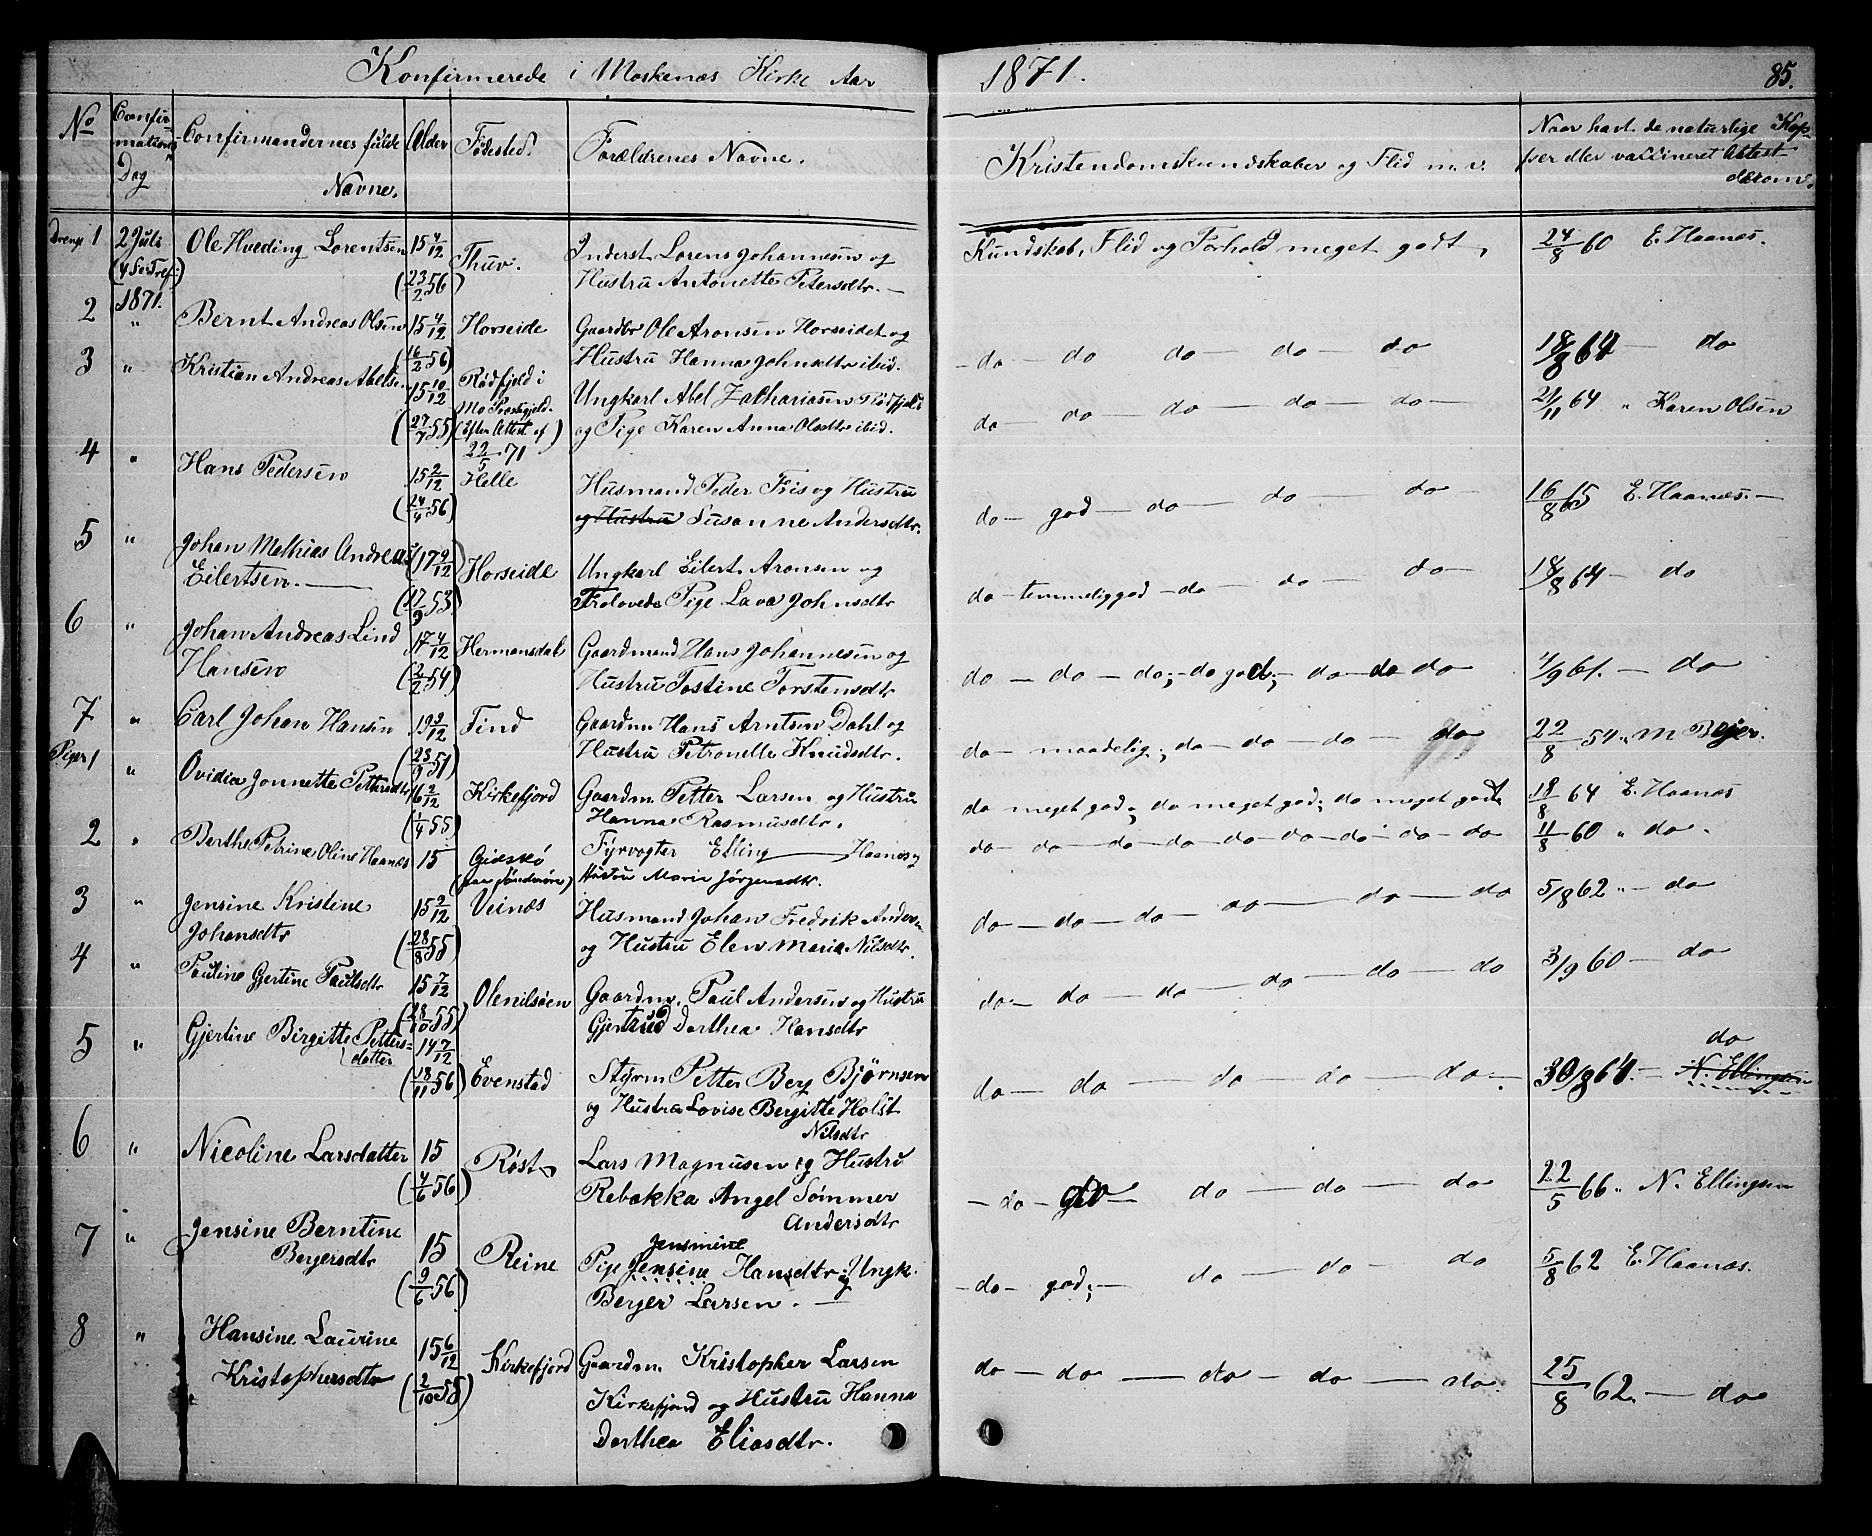 Konfirmerede i Moskenæs Kirke Aar 1871. 85.
No
Confirmations Dag
Confirmandernes fulde Navne.
Alder
Fødested.
Forældrenes Navne.
Kristendomskundskaber og Flid m. v.
Naar havt de naturlige Kopper eller vaccineret Attest derom.
Drenge 1 2 Juli (4 S. e. Tref:) 1871. Ole Hveding Lorentsen 15 4/12 (23/2 56) Thuv. Inderst Lorens Johannesen og
Hustru Antonette Petersdtr. — Kundskab, Flid og Forhold meget godt, 24/8 60 E. Haanæs.
2 " Bernt Andreas Olsen 15 4/12 (16/2 56) Horseide Gaardbr Ole Aronsen Horseidet og
Hustru Hanna Johnsdtr ibid. do — do do — do — do 18/8 64 — do
3 " Kristian Andreas Abelsen 15 10/12 (27/7 55) Rødfjeld i Mo Præstegjeld. (Efter Attest af 22/5 71) Ungkarl Abel Zachariasen Rødfjeld
og Pige Karen Anna Olsdtr ibid. do — do — do — do — do — 21/11 64 " Karen Olsen
4 " Hans Pedersen 15 2/12 (24/4 56) Helle Husmand Peder Friis og Hustru
og Hustru Susanne Andersdtr. do — god — do — do — do — 16/8 65 E. Haanæs. —
5 " Johan Mathias Andreas Eilertsen. 17 9/12 (17/9 53) Horseide Ungkarl Eilert Aronsen og
Trolovede Pige Lava Johnsdtr do — temmelig god — do — do — do — 18/8 64 — do
6 " Johan Andreas Lind Hansen 17 4/12 (2/2 54) Hermansdal Gaardmand Hans Johannesen og
Hustru Tostine Torstensdtr do — do — do; — do god; — do — do do 4/9 61. — do
7 " Carl Johan Hansen 19 9/12 (23/9 51) Find Gaardm. Hans Arntsen Dahl og
Hustru Petronelle Knudsdtr. do — maadelig; do — do — do — do 22/8 54 " M Bejer.
Piger 1 " Ovidia Jonnette Pettersdtr 16 2/12 (1/4 55) Kirkefjord Gaardm. Petter Larsen og Hustru
Hanna Rasmusdtr. do meget god; do meget god; do meget godt. 18/8 64 E. Haanæs
2 " Berthe Petrine Oline Haanæs 15 Gidskø (paa Søndmøre) Fyrvogter Elling — Haanæs og
Hustru Maria Jørgensdtr. do — do — do — do — do — do — do — do — do 11/8 60 " do.
3 " Jensine Kristine Johansdtr 15 9/12 (28/8 55) Veinæs Husmand Johan Fredrik Andersen
og Hustru Elen Maria Nilsdtr. do — do — do — do — do — do 5/8 62 " — do
4 " Pauline Gjertine Paulsdtr 15 7/12 (28/10 55) Olenilsøen Gaardm. Paul Andersen og Hustru
Gjertrud Dorthea Hansdtr do — do — do — do — do — do 3/9 60 — do
5 " Gjertine Birgitte Pettersdatter 14 7/12 (18/11 56) Evenstad Styrm Petter Berg Bjørnsen
og Hustru Lovise Bergitte Holst
Nilsdtr do — do — do — do — do. 30/8 64. — N. Ellingsen do
6 " Nicoline Larsdatter 15 (4/6 56) Røst Lars Magnusen og Hustru
Rebekka Angel Sømmer
Andersdtr — do — do — do — do — do 22/5 66 " N. Ellingsen
7 " Jensine Berntine Bergersdtr 15 (9/6 56) Reine Pige Jensine Jensmine Hansdtr og Ungk.
Berger Larsen. — — do — god; — do — do — do 5/8 62 E. Haanæs.
8 " Hansine Laurine Kristophersdtr 15 6/12 (2/10 55) Kirkefjord Gaardm. Kristopher Larsen
Kirkefjord og Hustru Hanna
Dorthea Eliasdtr. do — do — do — do — do. 25/8 62. — do